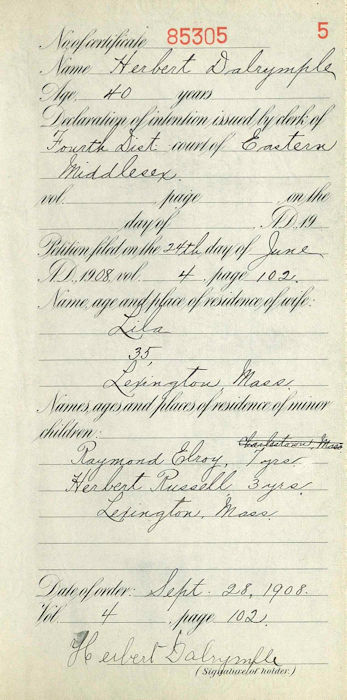 No. of certificate 85305 5
Name Herbert Dalrymple
Age, 40 years
Declaration of intention issued by clerk of
Fourth Dist. court of Eastern
Middlesex.
vol. , page , on the
day of , A.D. 19
Petition filed on the 24th day of June
A.D. 1908, vol. 4, page 102.
Name, age and place of residence of wife:
Lila
35,
Lexington, Mass.
Names, ages and places of residence of minor
children:
Charlestown, Mass
Raymond Elroy, 7 yrs.
Herbert Russell 3 yrs.
Lexington, Mass.
Date of order: Sept. 28, 1908.
Vol. 4, page 102.
Herbert Dalrymple
(Signature of holder.)